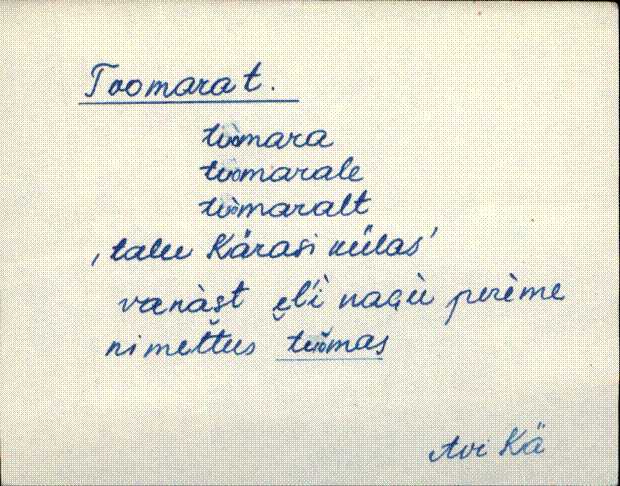 Toomara t.
tuòmara
tuòmarale
tuòmaralt
‚talu Kärasi külas’
vanàst el'i nagù perème
nimettus tuòmas
Avi Kä